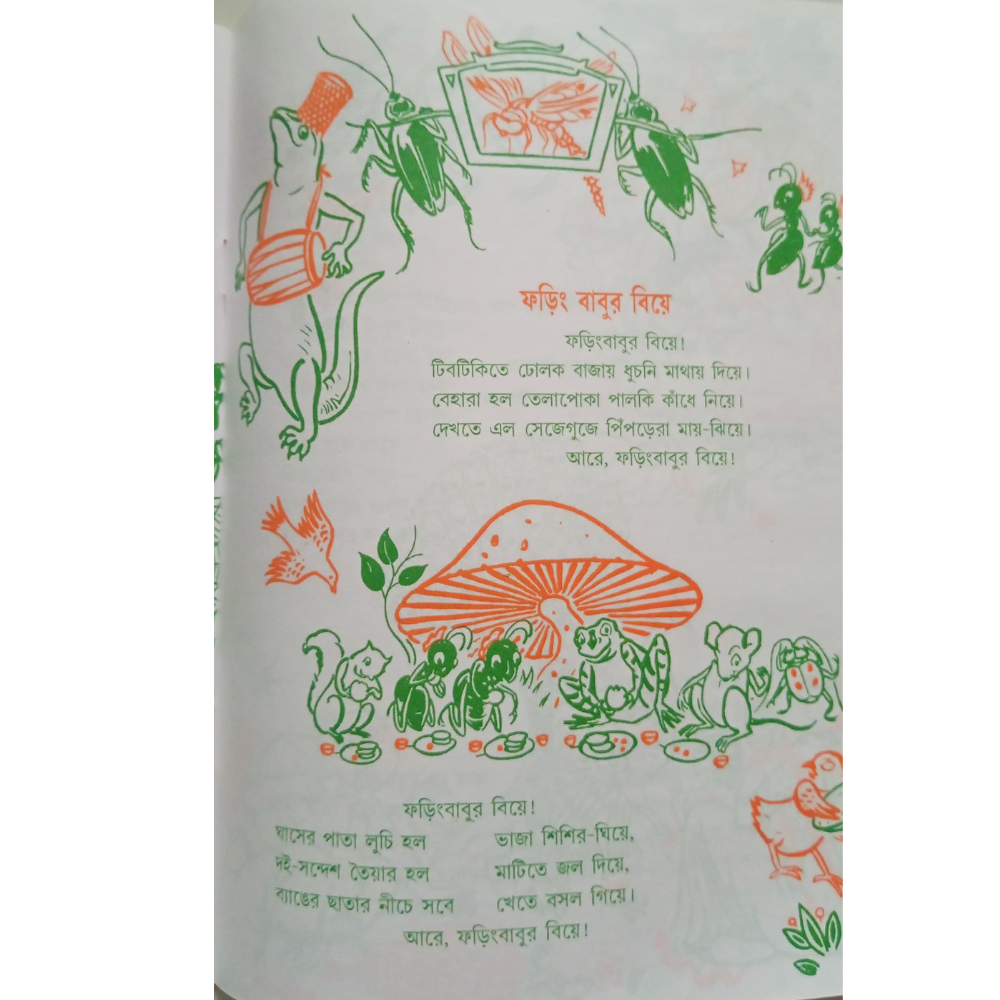 ফড়িং বাবুর বিয়ে
ফড়িংবাবুর বিয়ে!
টিবটিকিতে ঢোলক বাজায় ধুচনি মাথায় দিয়ে।
বেহারা হল তেলাপোকা পালকি কাঁধে নিয়ে।
দেখতে এল সেজেগুজে পিঁপড়েরা মায়-ঝিয়ে।
আরে, ফড়িংবাবুর বিয়ে!
ফড়িংবাবুর বিয়ে!
ঘাসের পাতা লুচি হল ভাজা শিশির-ঘিয়ে,
দই-সন্দেশ তৈয়ার হল মাটিতে জল দিয়ে,
ব্যাঙের ছাতার নীচে সবে খেতে বসল গিয়ে।
আরে, ফড়িংবাবুর বিয়ে!